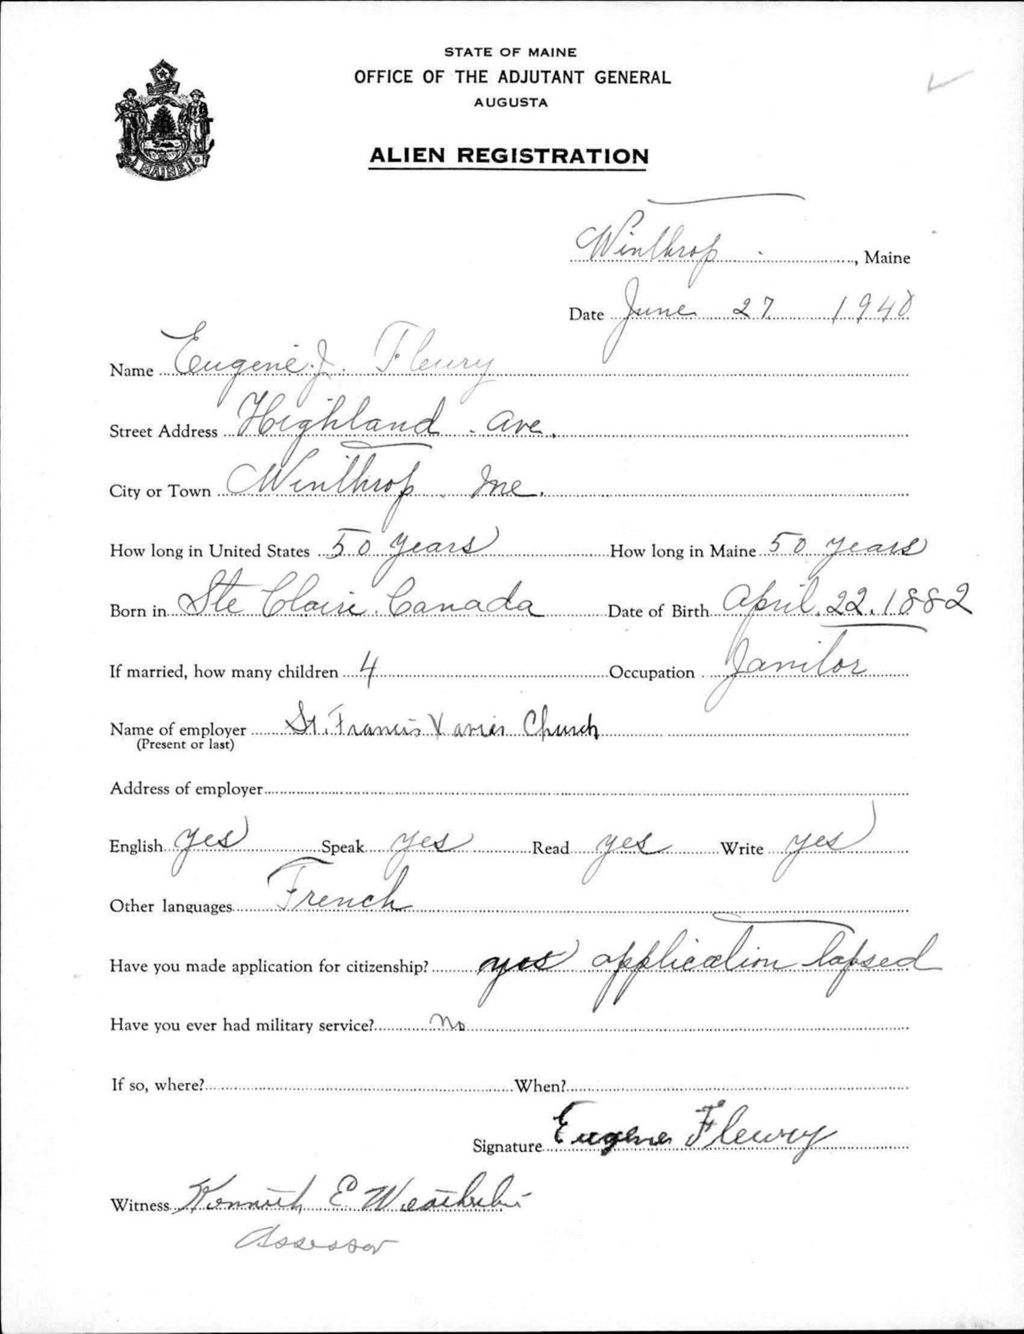 STATE OF MAINE
OFFICE OF THE ADJUTANT GENERAL
AUGUSTA
ALIEN REGISTRATION
MAINE
Winthrop, Maine
Date June 27 1940
Name Eugene J. Fleury
Street Address Highland Ave.
City or Town Winthrop Me.
How long in United States 50 years How long in Maine 50 years
Born in Ste Claire Canada Date of Birth April 22, 1882
If married, how many children 4 Occupation Janitor
Name of employer St. Francis Xavier Church
(Present or last)
Address of employer
English yes Speak yes Read yes Write yes
Other languages French
Have you made application for citizenship? yes application lapsed
Have you ever had military service? No
If so, where? When?
Signature Eugene Fleury
Witness Kenneth E
Assessor